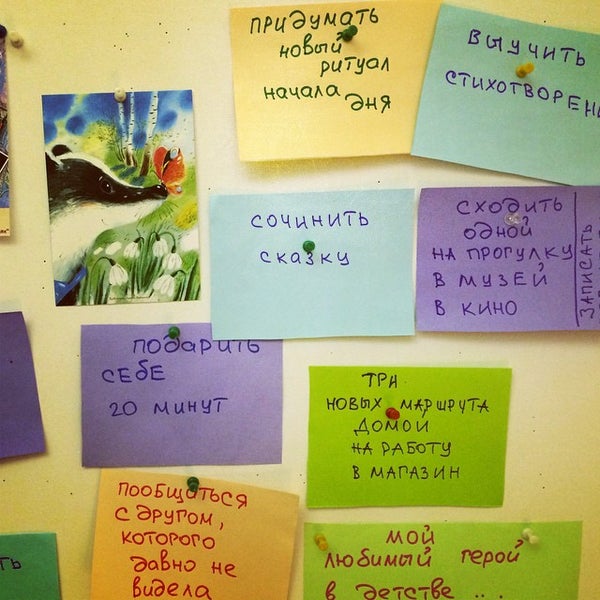 ПРИДУМАТЬ
НОВЫЙ
РИТУАЛ
НАЧАЛА
ДНЯ
ВЫУЧИТЬ
СОЧИНИТЬ
СКАЗКУ
СХОДИТЬ
ОДНОЙ
НА ПРОГУЛКУ
В МУЗЕЙ
В КИНО
ЗАПИСАТЬ
ПОДАРИТЬ
СЕБЕ
20 МИНУТ
ТРИ
НОВЫХ МАРШРУТА
ДОМОЙ
НА РАБОТУ
В МАГАЗИН
ПООБЩАТЬСЯ
С ДРУГОМ,
КОТОРОГО
ДАВНО НЕ
ВИДЕЛА
МОЙ
ЛЮБИМЫЙ ГЕРОЙ
В ДЕТСТВЕ ...